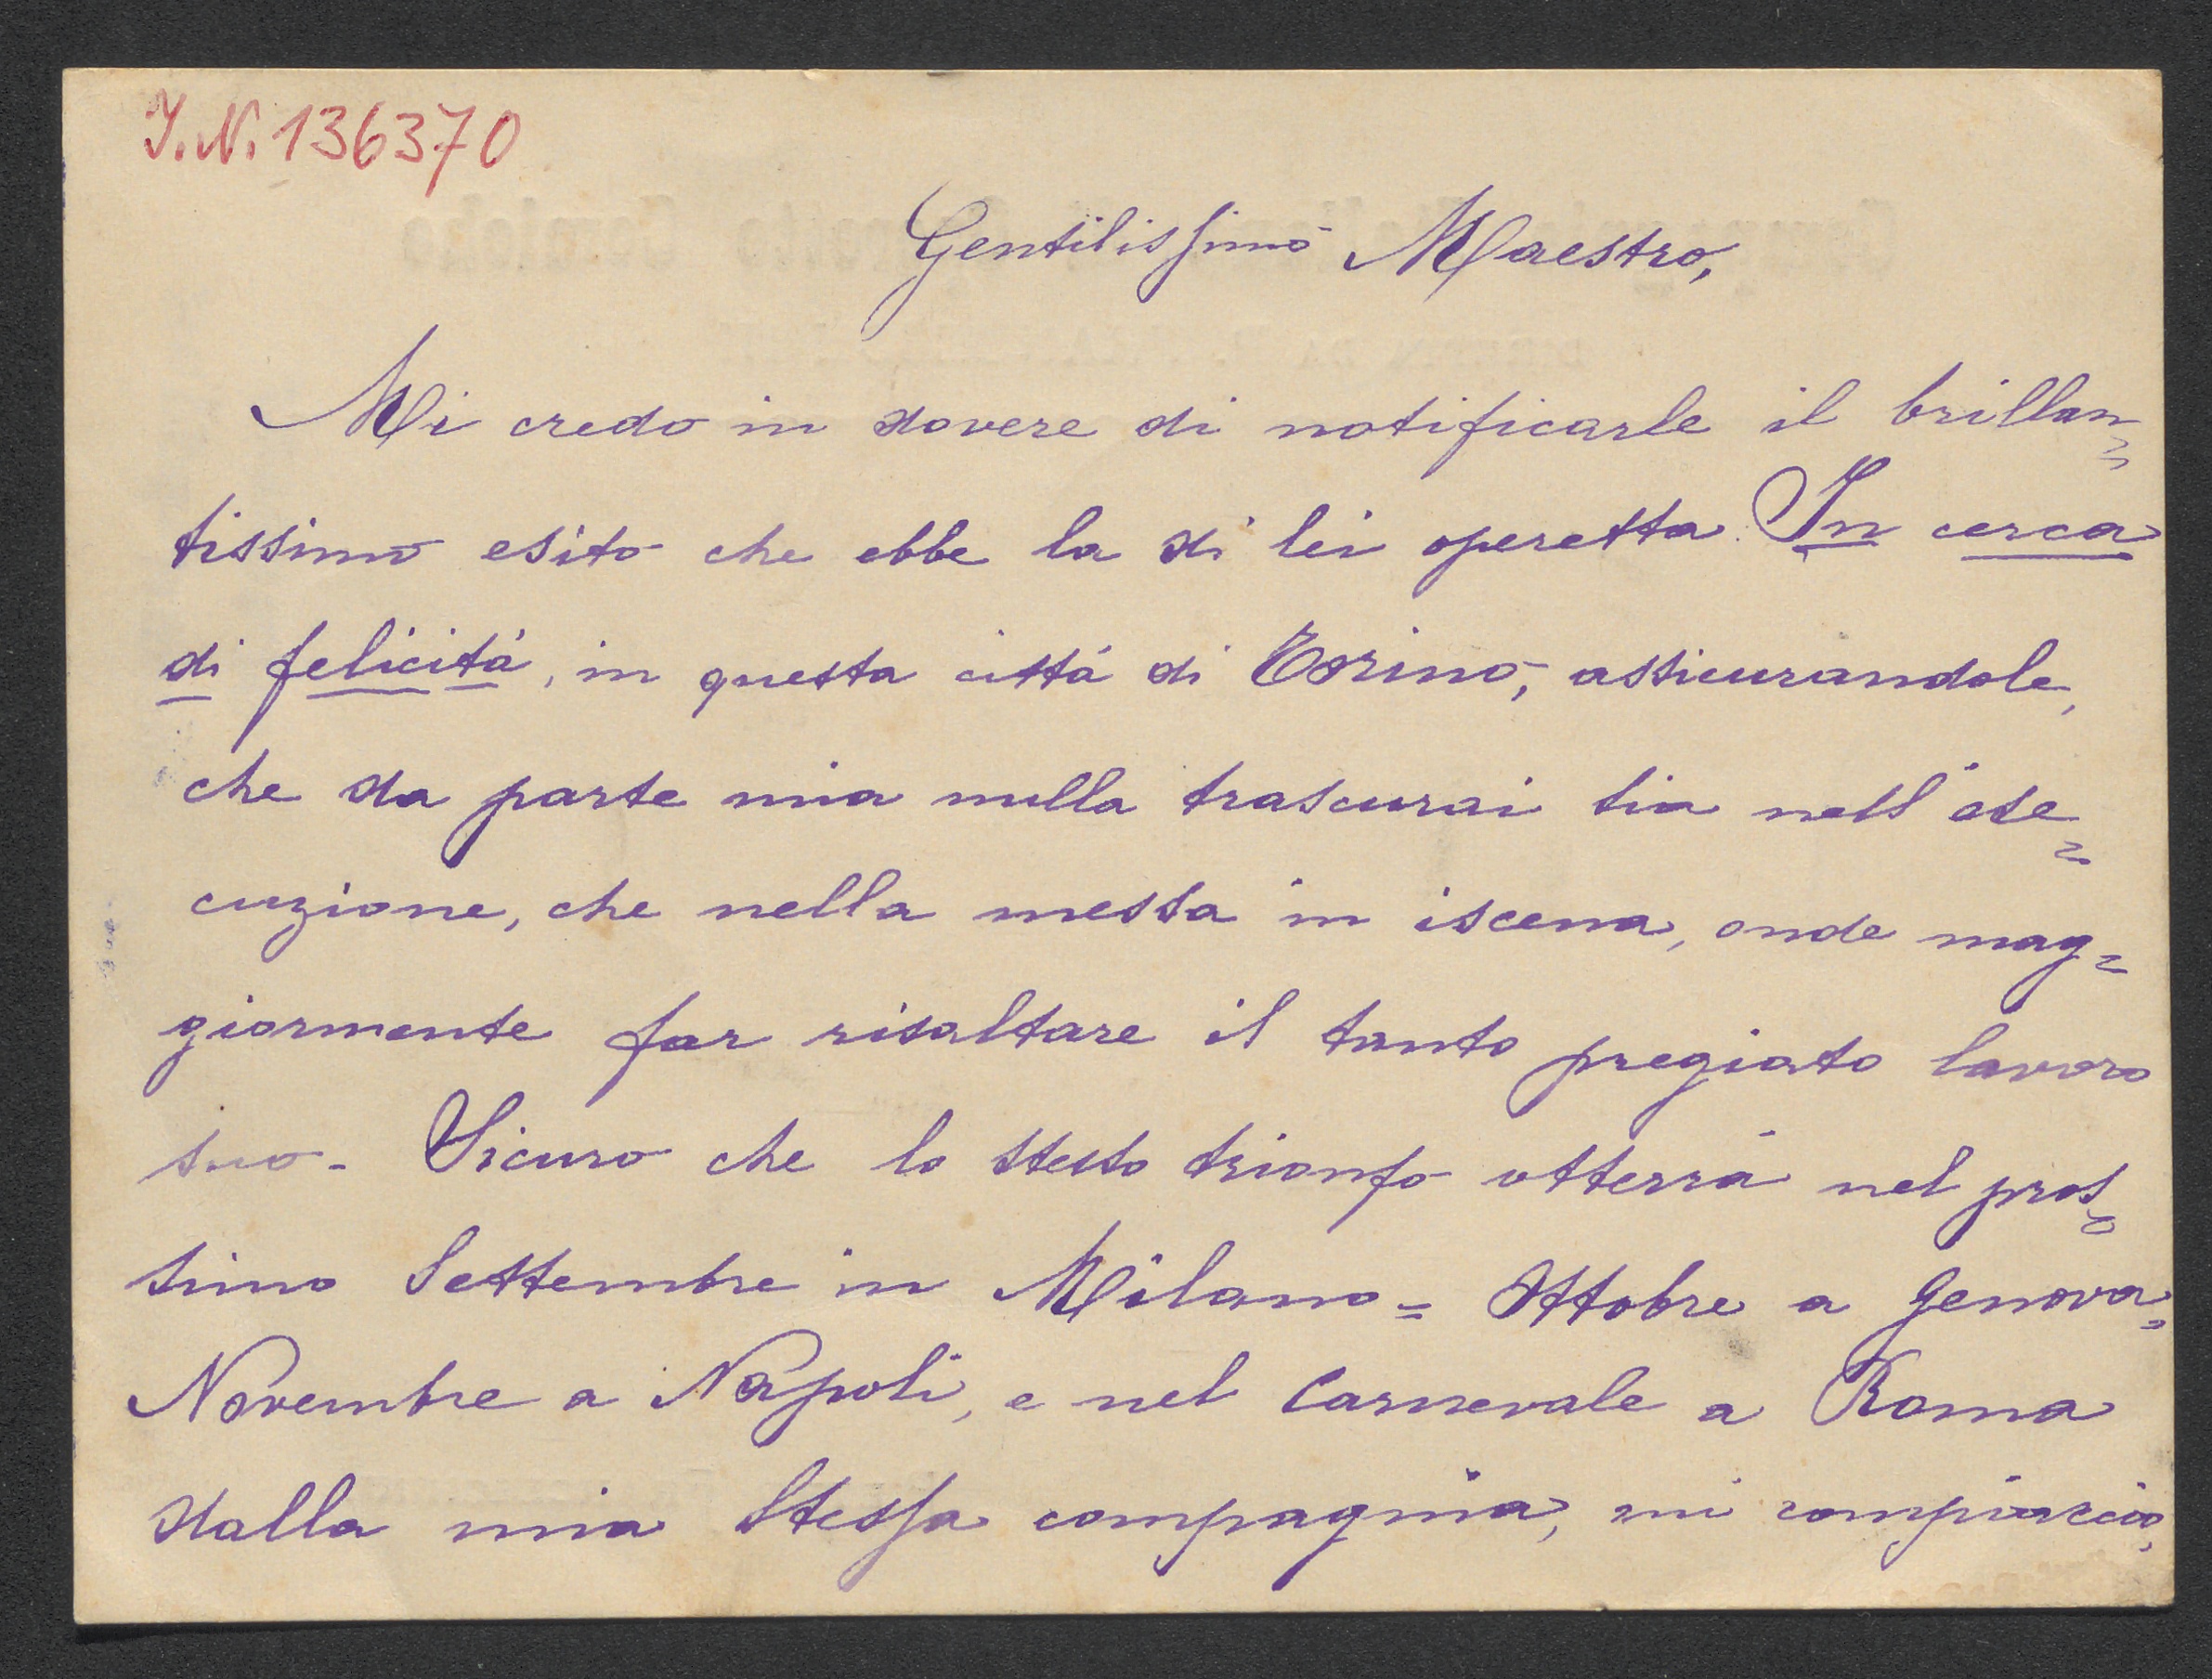 I.N. 136370
Gentilissimo Maestro,
Mi credo in dovere di notificarle il brillan=
tissimo esito che ebbe la di lei operetta In cerca
di felicità, in questa città di Torino, assicurandole,
che da parte mia nulla trascurai sia nell'ese=
cuzione, che nella messa in iscena, onde mag=
giormente far risaltare il tanto pregiato lavoro
suo - Sicuro che lo stesso trionfo otterrà nel pros=
simo Settembre in Milano = Ottobre a Genova =
Novembre a Napoli, e nel Carnevale a Roma
dalla mia stessa compagnia, mi compiaccio,